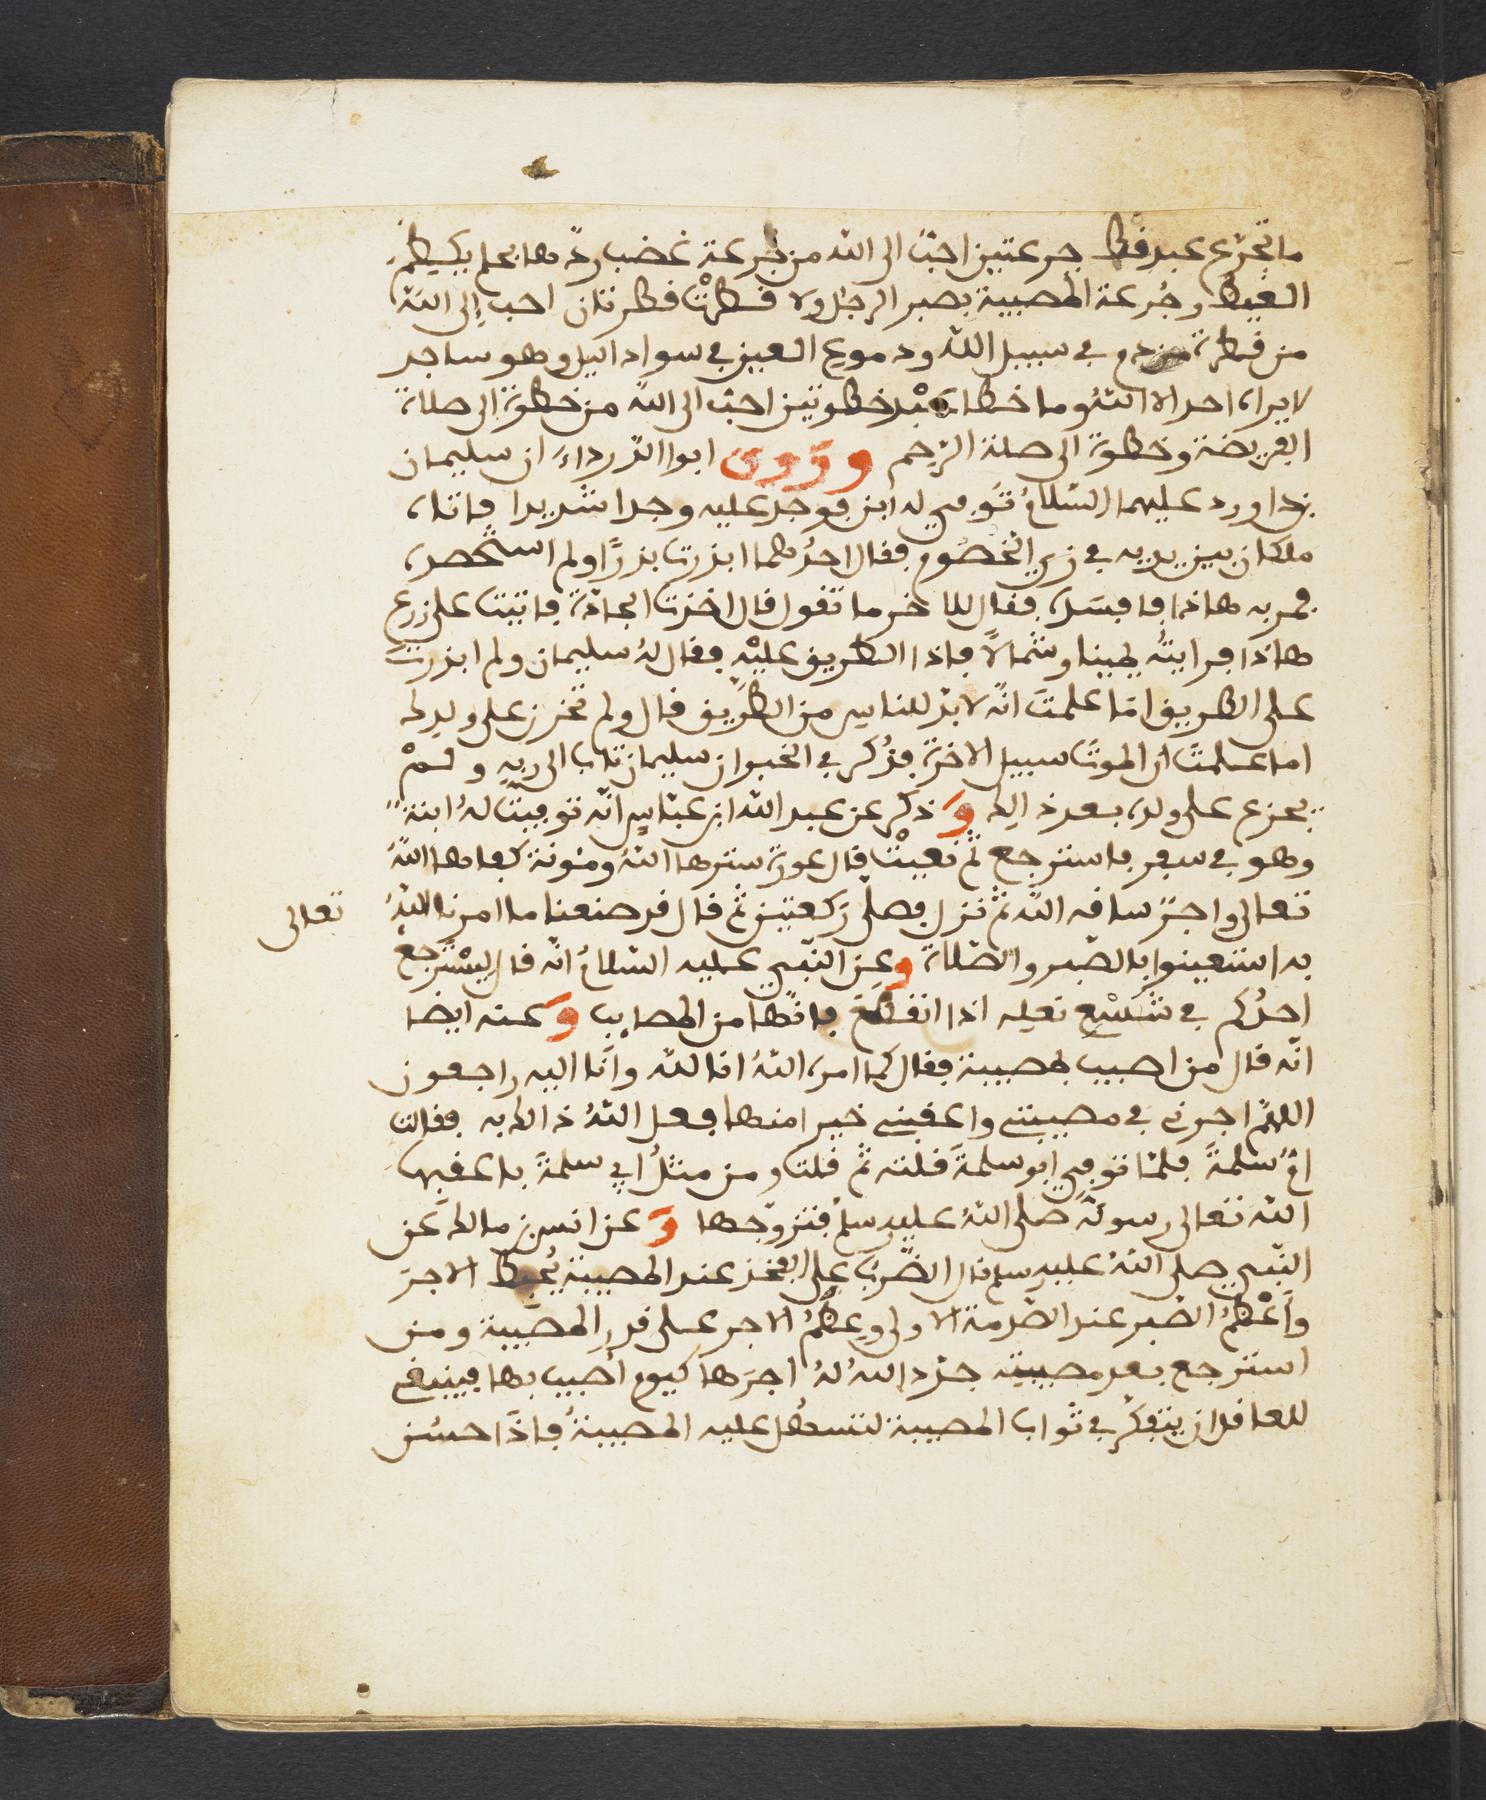 ما تجرع عبد قط جرعتين احبّ الى الله من جرعة غضب ردّها بحلم يكظم
الغيظ وجُرعة المصيبة بصبر الرجل ولا قطرتْ قطرتان احب إلى الله
من قطرة دم في سبيل الله ودموع العين في سواد اليل وهو ساجد
لا يراه احد الا اللهُ وما خطا عبْد خطوتين احبّ الى الله من خطوة الى صلاة
الفريضة وخطوة الى صلة الرّحم وروى ابوا الدّرداءَ ان سليمان
بن داوود عليهما السّلامُ تُوفي له ابن فوجد عليه وجدا شديدا فاتاه
ملكان بين يديه في زي الخصُوم فقال احدُهما ابذرت بذرًا ولم استحصده
فمر به هاذا فافسده فقال للاخر ما تقول قال اخذت الجادّة فاتيت على زرع
هاذا فرايتُه يمينا وشمالًا فاذا الطريق عليْه فقال لهُ سليمان ولم ابذرت
على الطريق امّا علمتَ انّه لا بدّ للناس من الطّريق قال ولم تحزن على ولدك
اما علمتَ ان الموتَ سبيل الاخرة فذُكر في الخبر ان سليمان تاب الى ربه ولمْ
يجزع على ولده بعد ذالك وَذكر عن عبد الله ابن عبّاس انّه توفيتْ لهُ ابنة
وهو في سفر فاسترجع ثم نعيتْ قال عورة سترها اللهُ ومئونة كفاها اللهُ
تعالى واجرٌ ساقه اللّه ثم نزل فصلّى رَكعتين ثم قال قد صنعنا ما امرنا اللهُ تعالى
به استعينوا بالصّبر والصّلاة وعن النّبي عليه السّلامُ انّه قال ليسْترجع
احدُكم في شسْع نعله اذا انقطع فانّها من المصايب وَعنه ايضا
انّه قال من اصيب بمصيبة فقال كما امره اللهُ انا لله وانّا اليه راجعون
اللهمّ اجرني في مصيبتي واعقبني خيرا منها فعل اللهُ ذالك به فقالت
امّ سلمةَ فلمّا توفي ابو سلمةَ قلته ثم قلت ومن مثلُ ابي سلمةَ فاعقبها
الله تعالى رسولَه صلى اللهُ عليه وسلم فتزوّجها وَعن انس بن مالك عن
النّبي صلى اللهُ عليه وسلم قال الضّربَ على الفخذ عند المصيبة يُحبط الاجرَ
واعْظمُ الصّبر عند الصّدمة الاولى وعِظمُ الاجر على قدر المصيبة ومن
استرجع بعد مصيبته جدّد الله لهُ اجرَها كيوم اصيب بها فينبغي
للعاقل ان يتفكّر في ثواب المصيبة لتسهُل عليه المصيبةُ فاذا حسُن